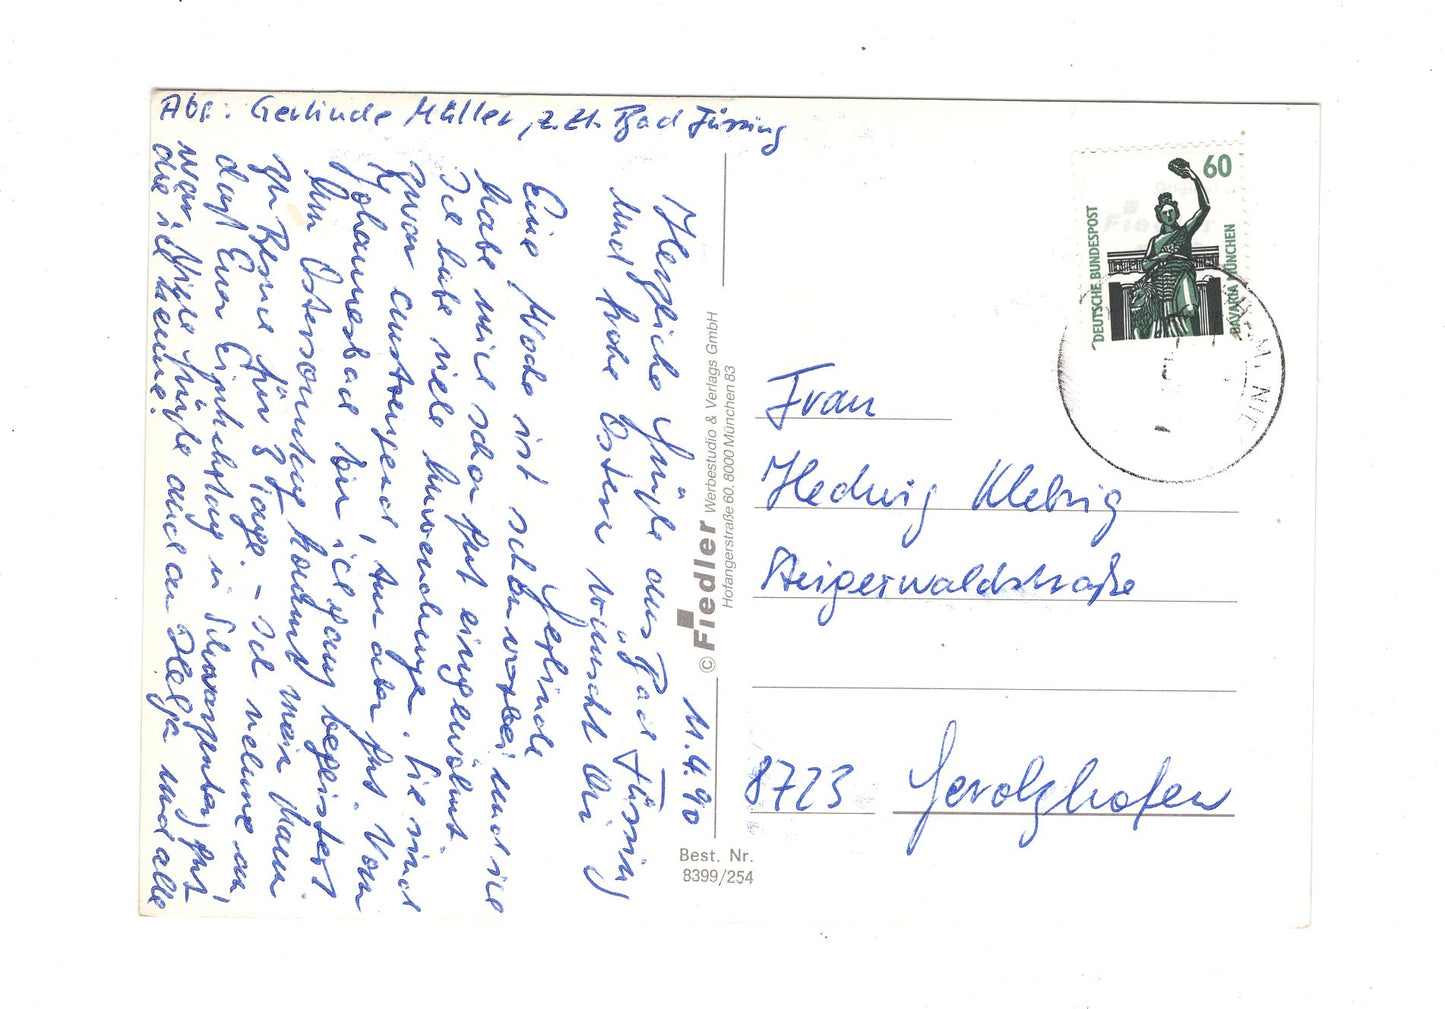 Abs.: Gerlinde Müller, z. Zt. Bad Füssing
11.4.90
Herzliche Grüße aus Bad Füssing
und frohe Ostern wünscht Dir
Gerlinde
Eine Woche ist schon vorbei und ich
habe mich schon gut eingewöhnt.
Ich habe viele Anwendungen. Sie sind
zwar anstrengend, tun aber gut. Vom
Johannesbad bin ich ganz begeistert.
Am Ostersonntag kommt mein Mann
zu Besuch für 8 Tage. - Ich nehme an,
daß Euer Einkehrtag in Schwarzenberg gut
war. Viele Grüße auch an Helga und alle
die ich kenne.
60
DEUTSCHE BUNDESPOST
BAVARIA MÜNCHEN
Frau
Hedwig Klebrig
Steigerwaldstraße
8723 Gerolzhofen
© Fiedler Werbestudio & Verlags GmbH
Hofangerstraße 60, 8000 München 83
Best. Nr.
8399/254